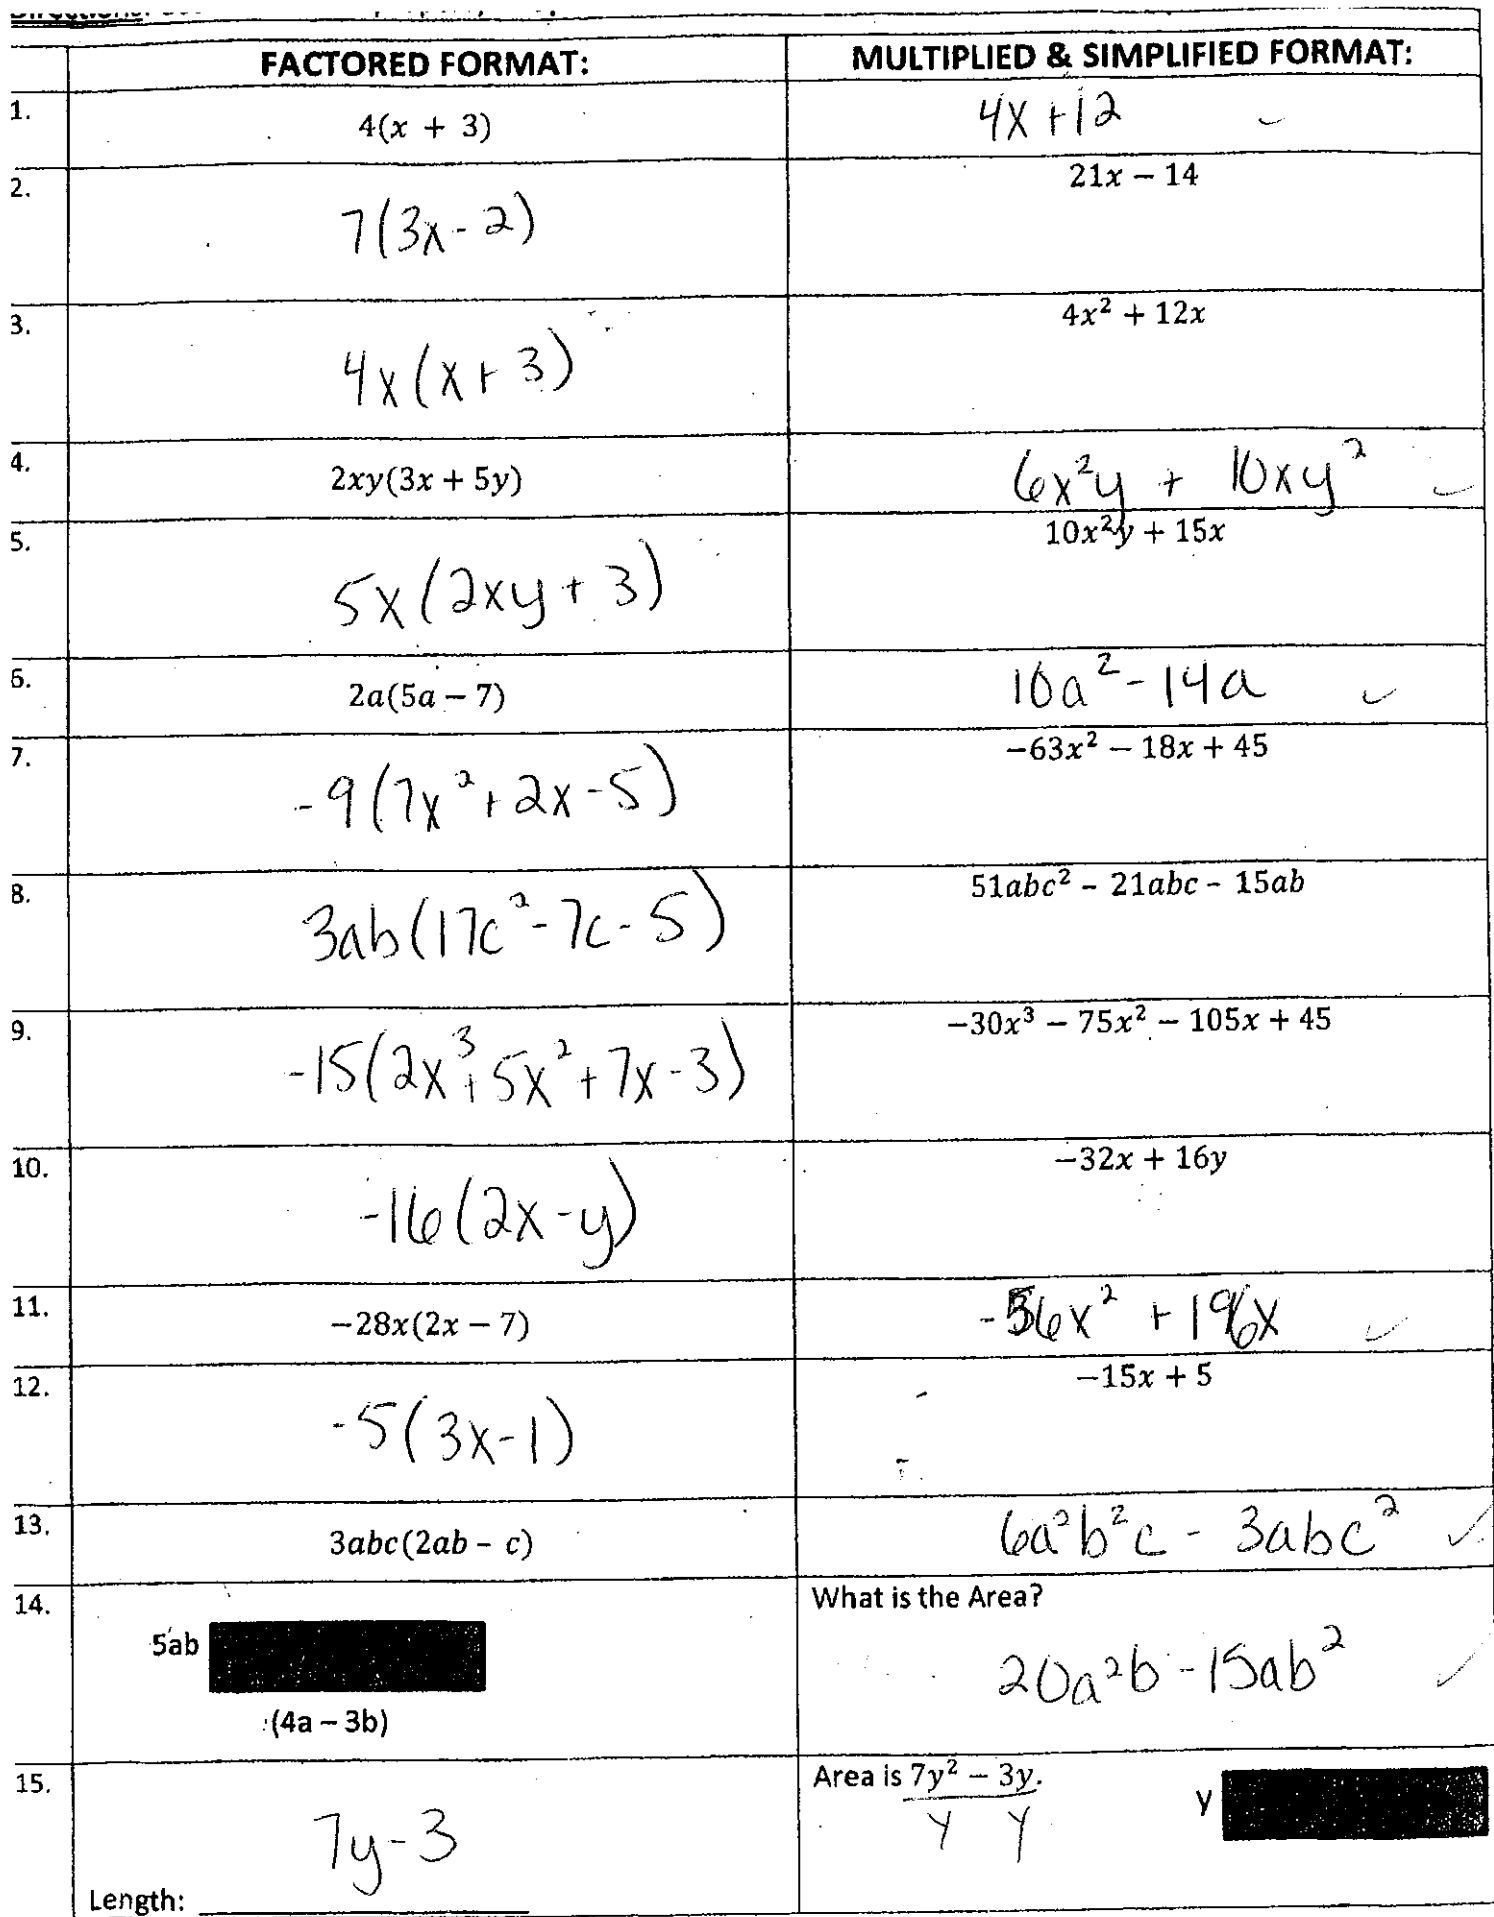 Directions:
FACTORED FORMAT: MULTIPLIED & SIMPLIFIED FORMAT:
1. 4(x + 3) 4x + 12
2. 7(3x - 2) 21x − 14
3. 4x(x + 3) 4x² + 12x
4. 2xy(3x + 5y) 6x²y + 10xy²
5. 5x(2xy + 3) 10x²y + 15x
6. 2a(5a − 7) 10a² - 14a
7. -9(7x² + 2x - 5) −63x² − 18x + 45
8. 3ab(17c² - 7c - 5) 51abc² - 21abc - 15ab
9. -15(2x³ + 5x² + 7x - 3) −30x³ − 75x² − 105x + 45
10. -16(2x - y) −32x + 16y
11. −28x(2x − 7) -56x² + 196x
12. -5(3x - 1) −15x + 5
13. 3abc(2ab - c) 6a²b²c - 3abc²
14. What is the Area?
5ab 20a²b - 15ab²
(4a – 3b)
15. Area is 7y² − 3y. y
7y - 3 y y
Length: